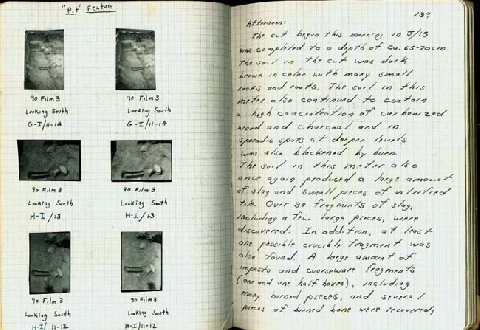 "pit" Feature
90 Film 3
Looking South
G-I/11-14
90 Film 3
Looking South
G-I/11-14
90 Film 3
Looking South
H-I/13
90 Film 3
Looking South
H-I/13
90 Film 3
Looking South
H-I/11-12
90 Film 3
Looking South
H-I/11-12
139
Afternoon:
The cut begun this morning in J/13
was completed to a depth of ca. 65-70cm.
The soil in the cut was dark
brown in color with many small
rocks and roots. The soil in this
meter also continued to contain
a high concentration of carbonized
wood and charcoal and in
sporadic spots at deeper levels
was also blackened by burn.
The soil in this meter also
once again produced a large amount
of slag and small pieces of vitrified
tile. Over 30 fragments of slag,
including a few large pieces, were
discovered. In addition, at least
one possible crucible fragment was
also found. A large amount of
impasto and coarseware fragments
(one and one half bowls), including
many burned pieces, and several
pieces of burned bone were recovered,